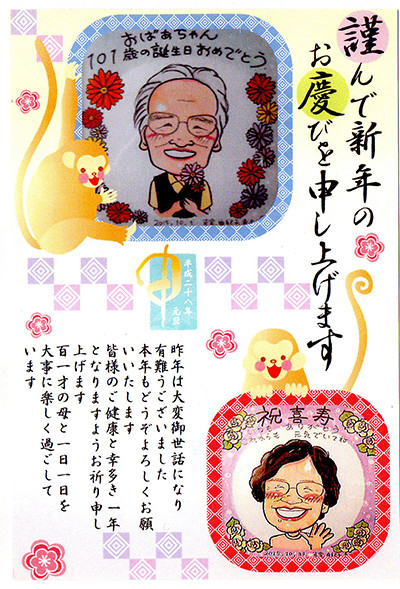 謹んで新年の
お慶びを申し上げます
おばあちゃん
101歳の誕生日おめでとう
2015.10.
平成二十八年
元旦
申
昨年は大変御世話になり
有難うございました
本年もどうぞよろしくお願
いいたします
皆様のご健康と幸多き一年
となりますようお祈り申し
上げます
百一才の母と一日一日を
大事に楽しく過ごして
います
祝喜寿
いつもありがとう
これからも 元気でいてね
2015.10.